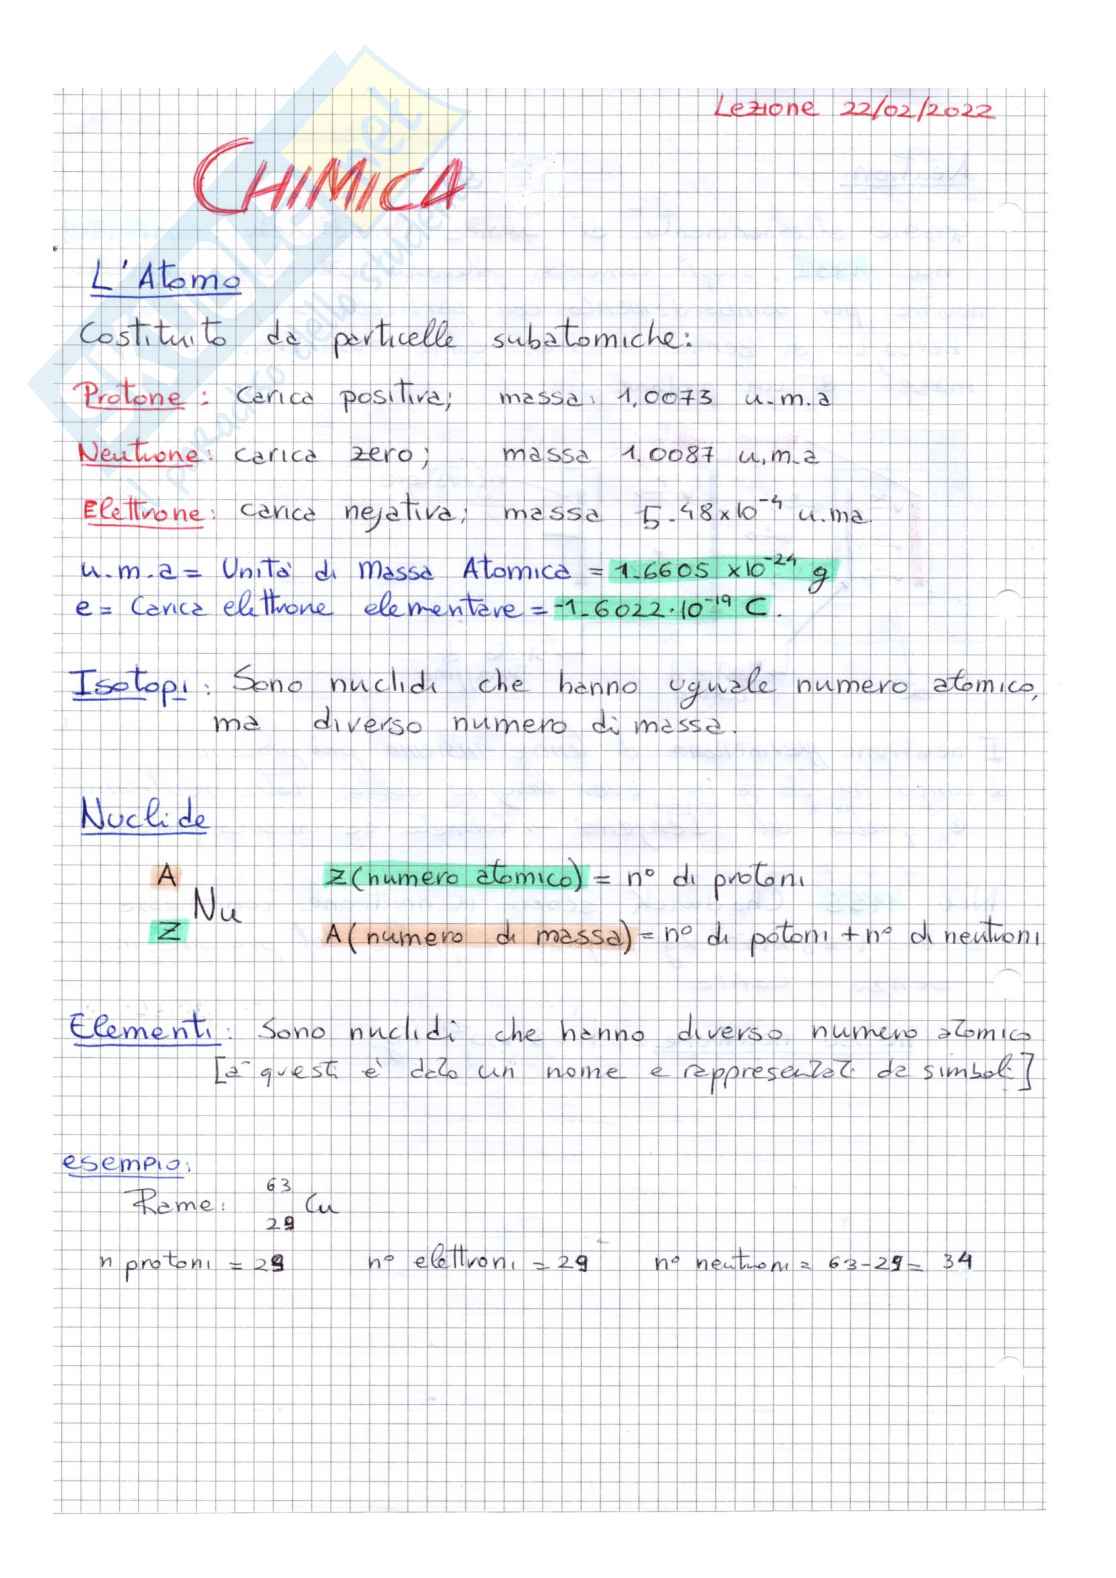 Lezione 22/02/2022
CHIMICA
L'Atomo
Costituito da particelle subatomiche:
Protone: Carica positiva; massa: 1,0073 u.m.a
Neutrone: carica zero; massa 1.0087 u.m.a
Elettrone: carica negativa; massa 5.48x10⁻⁴ u.ma.
u.m.a = Unità di Massa Atomica = 1.6605 x10⁻²⁴ g
e = Carica elettrone elementare = -1.6022·10⁻¹⁹ C.
Isotopi: Sono nuclidi che hanno uguale numero atomico,
ma diverso numero di massa.
Nuclide
A
Z (numero atomico) = n° di protoni
Nu
Z
A (numero di massa) = n° di potoni + n° di neutroni
Elementi: Sono nuclidi che hanno diverso numero atomico
[a questi è dato un nome e rappresentati da simboli]
esempio:
Rame: ⁶³₂₉ Cu
n protoni = 29 n° elettroni = 29 n° neutroni = 63-29= 34
ekuola.net
il paradiso dello studente